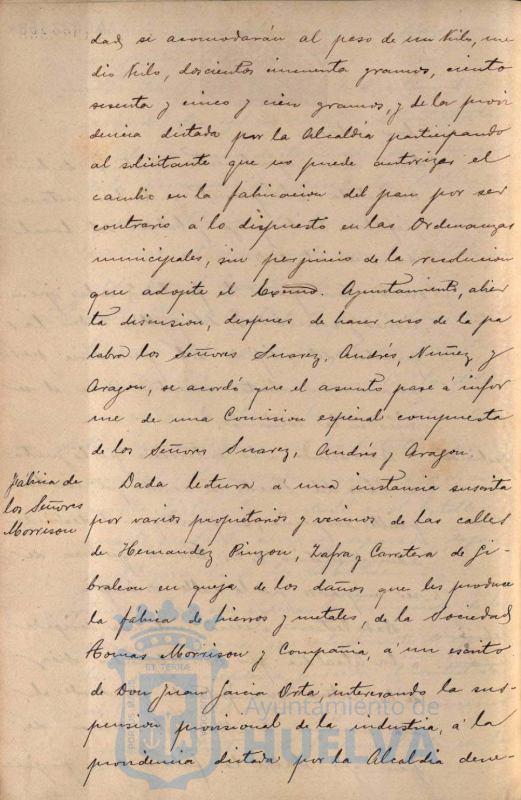 dad, si acomodarán al peso de un Kilo, me
dio Kilo, doscientos cincuenta gramos, ciento
sesenta y cinco y cien gramos, y de la provi
dencia dictada por la Alcaldía participando
al solicitante que no puede autorizar el
cambio en la fabricacion del pan por ser
contrario á lo dispuesto en las Ordenanzas
municipales, sin perjuicio de la resolucion
que adopte el Excmo. Ayuntamiento, abier
ta discusion, despues de hacer uso de la pa
labra los Señores Suarez, Andrés, Nuñez y
Aragon, se acordó que el asunto pase á infor
me de una Comision especial compuesta
de los Señores Suarez, Andrés y Aragon.
Fábrica de
los Señores
Morrison
Dada lectura á una instancia suscrita
por varios propietarios y vecinos de las calles
de Hernandez Pinzon, Zafra y Carretera de Gi-
braleon en queja de los daños que les produce
la fábrica de hierros y metales, de la Sociedad
Tomas Morrison y Compañia, á un escrito
de Don Juan Garcia Orta, interesando la sus-
pension provisional de la industria, á la
providencia dictada por la Alcaldía dene-
Ayuntamiento de
HUELVA